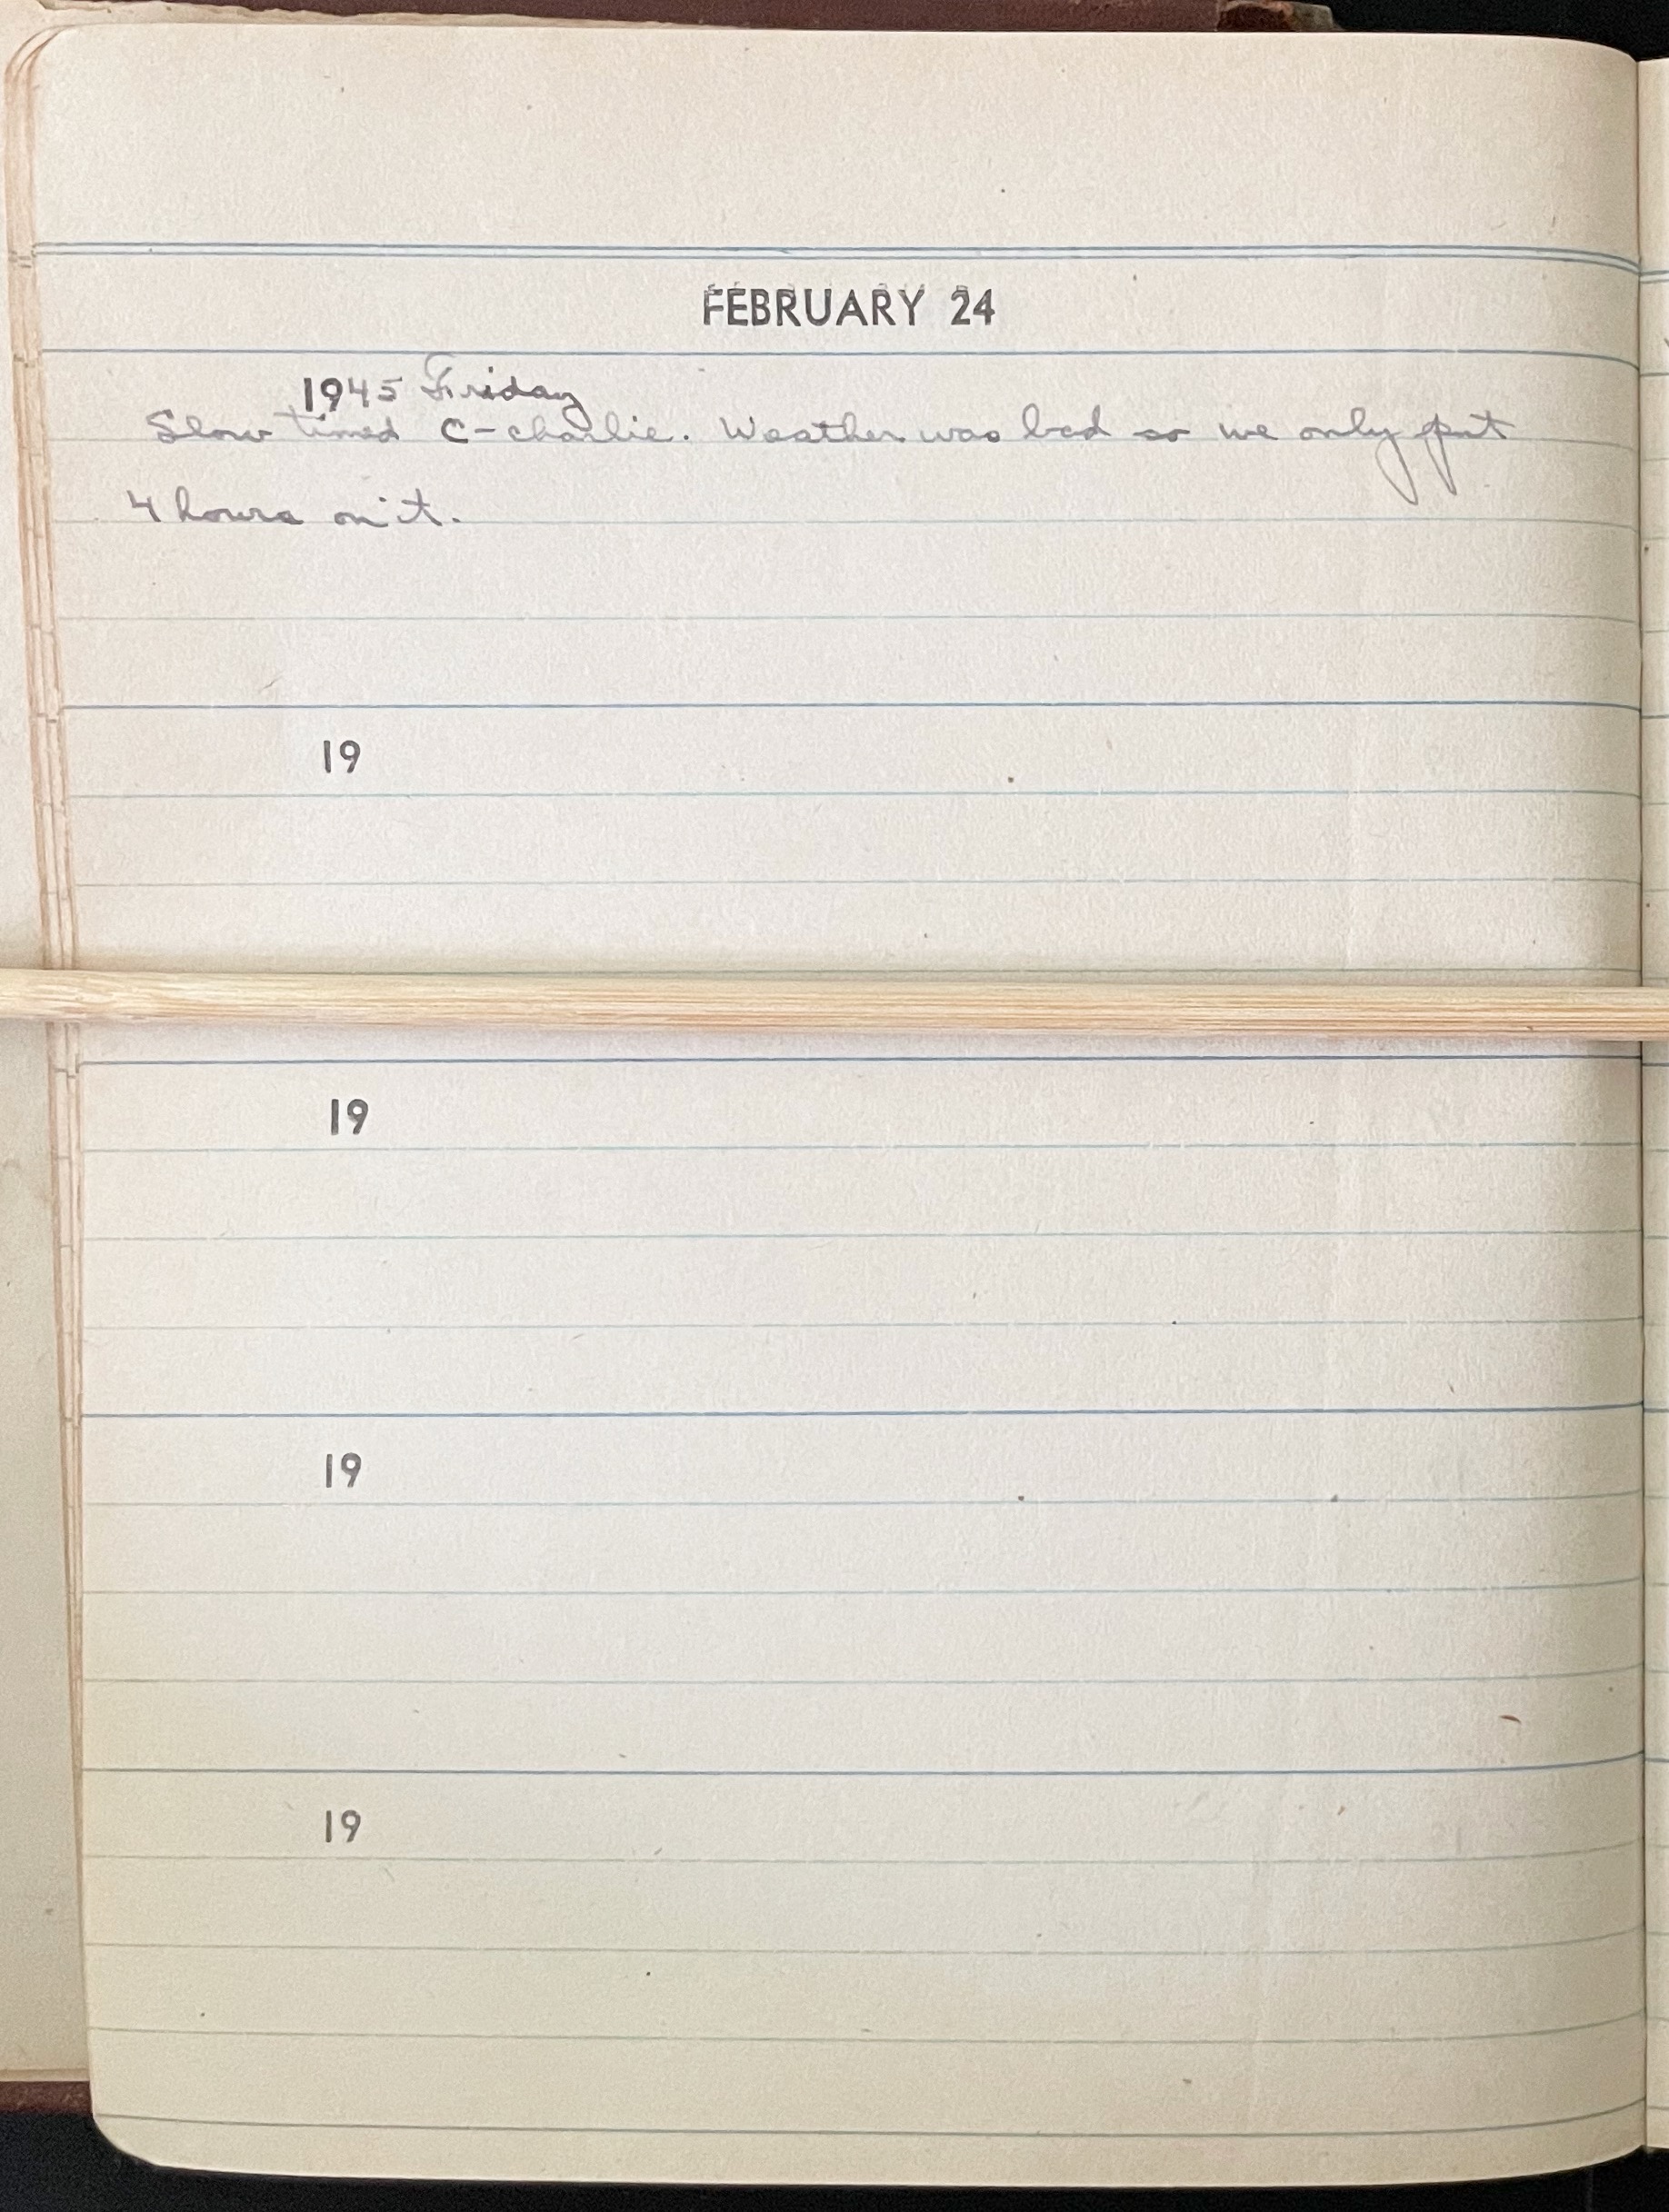 FEBRUARY 24
1945 Friday
Slow timed C-charlie. Weather was bad so we only put
4 hours on it.
19
19
19
19